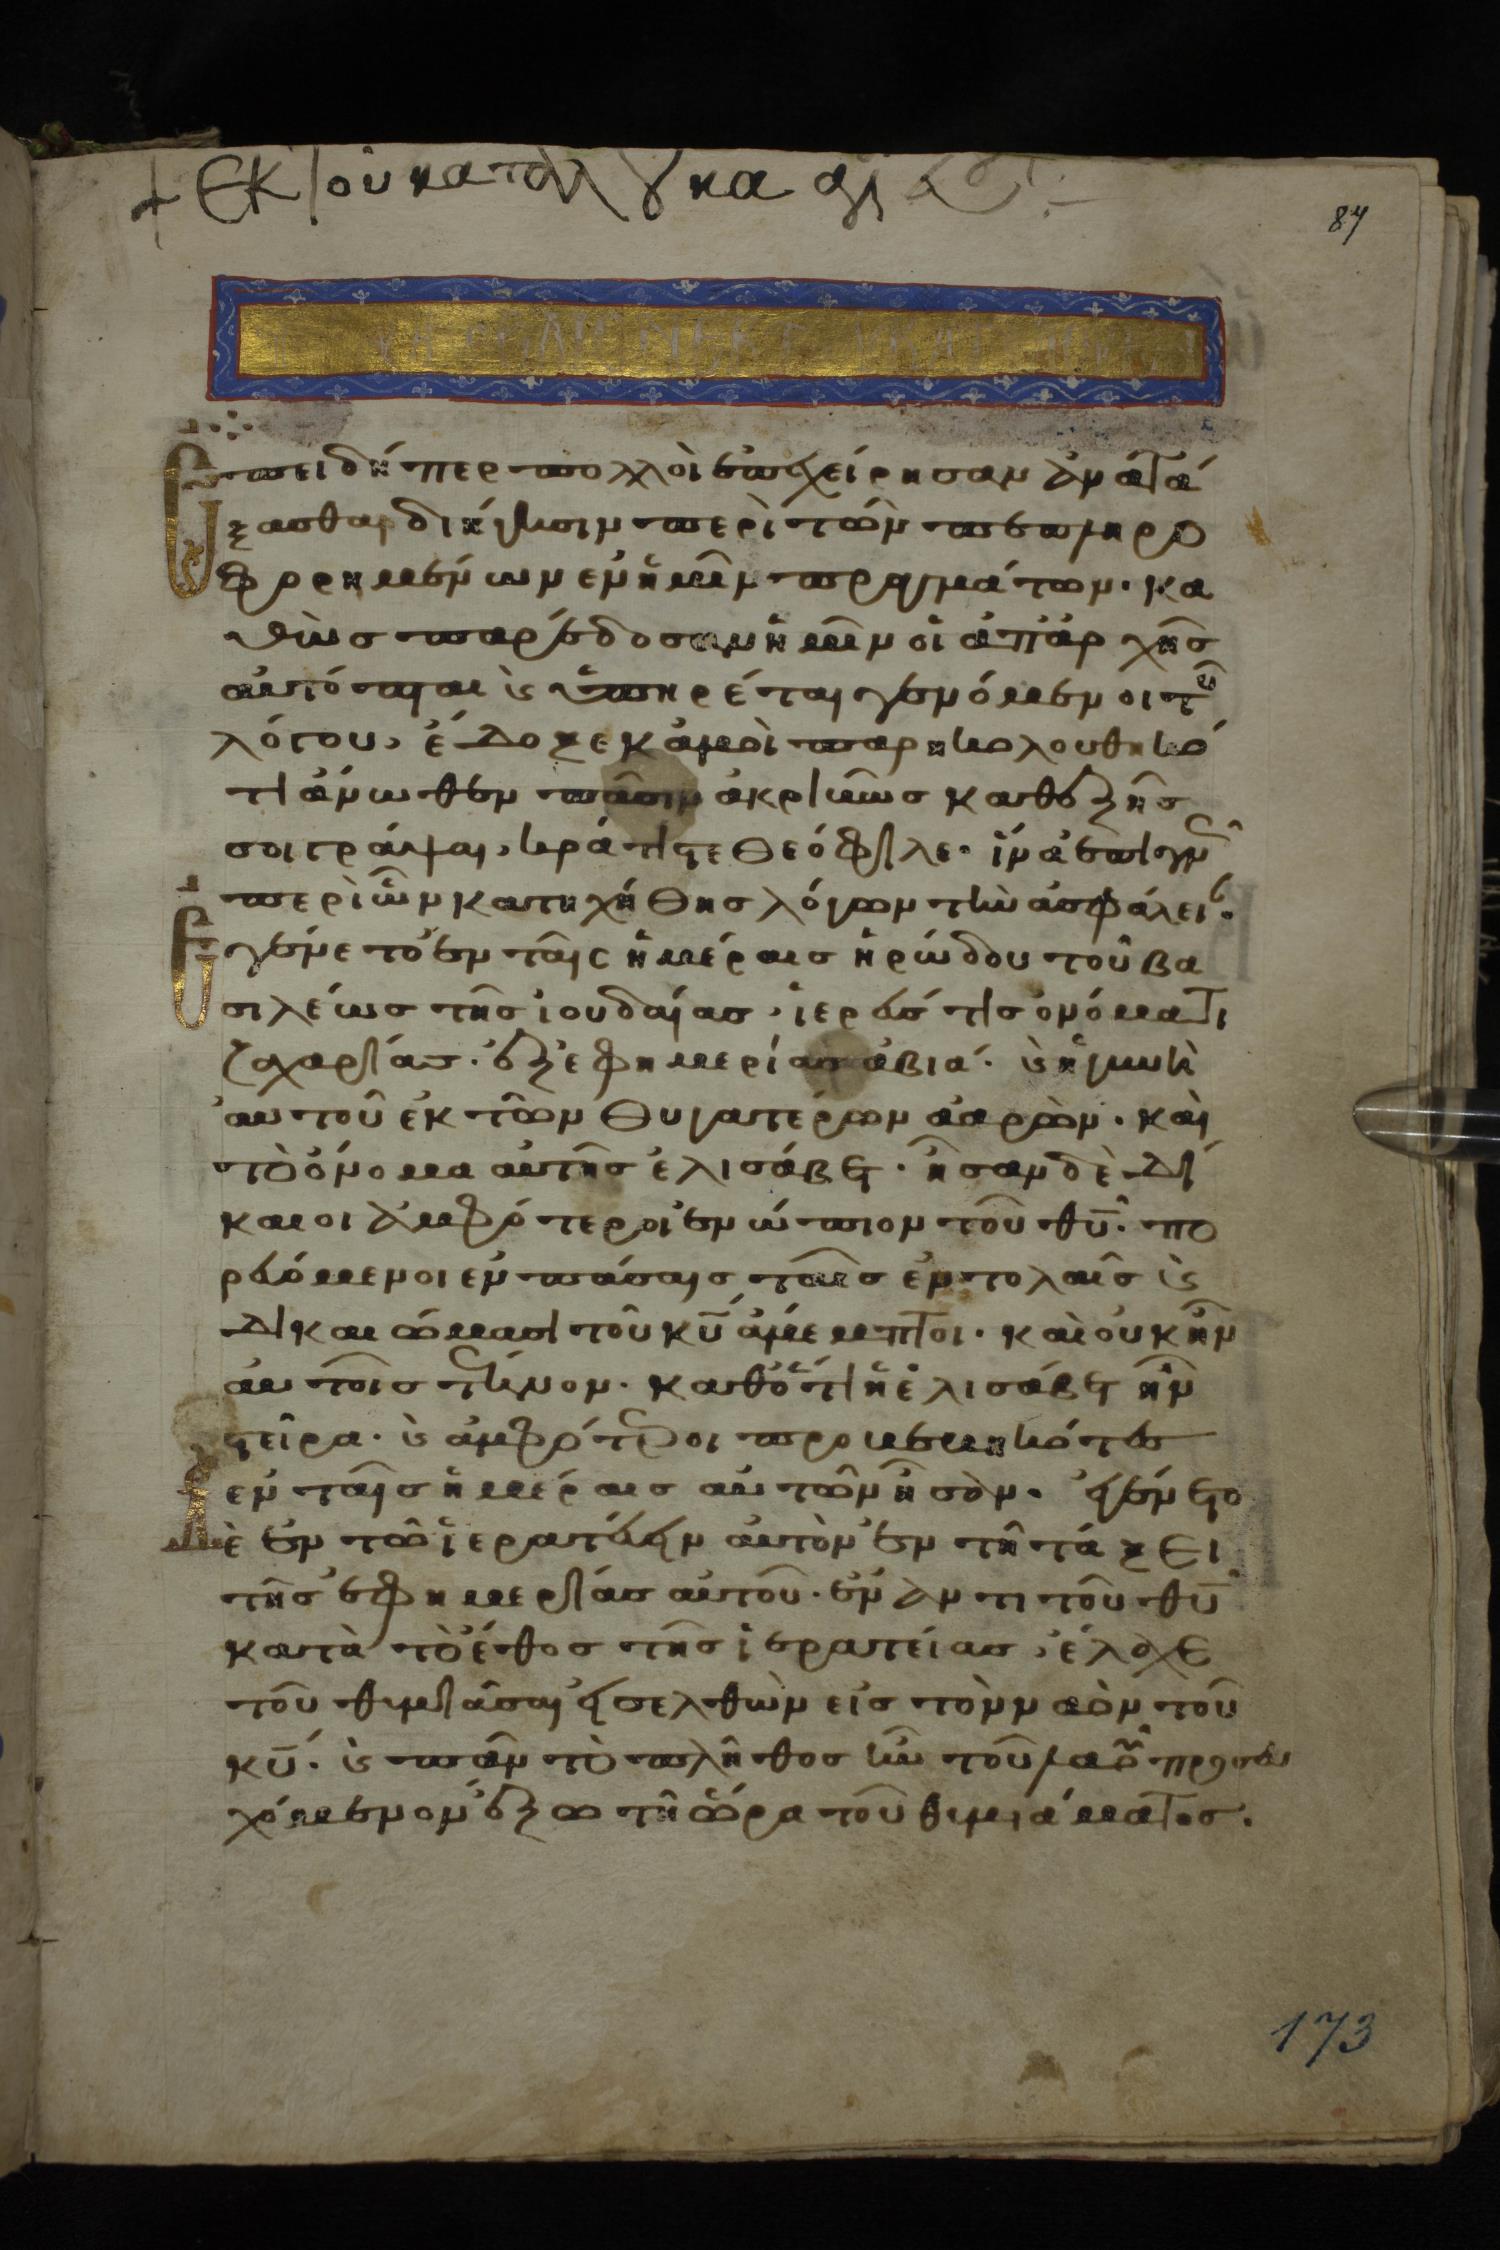 + ἐκ τοῦ κατὰ λουκᾶ ἁγι
87
Ἐπειδήπερ πολλοὶ ἐπεχείρησαν ἀνατά
ξασθαι διήγησιν περὶ τῶν πεπληρο
φορημένων ἐν ἡμῖν πραγμάτων· κα
θὼς παρέδοσαν ἡμῖν οἱ ἀπ' ἀρχῆς
αὐτόπται καὶ ὑπηρέται γενόμενοι τοῦ
λόγου, ἔδοξε κἀμοὶ παρηκολουθηκό
τι ἄνωθεν πᾶσιν ἀκριβῶς καθεξῆς
σοι γράψαι, κράτιστε Θεόφιλε· ἵνα ἐπιγνῷς
περὶ ὧν κατηχήθης λόγων τὴν ἀσφάλειαν.
Ἐγένετο ἐν ταῖς ἡμέραις ἡρώδου τοῦ βα
σιλέως τῆς ἰουδαίας, ἱερεύς τις ὀνόματι
ζαχαρίας· ἐξ ἐφημερίας ἀβιά· καὶ ἡ γυνὴ
αὐτοῦ ἐκ τῶν θυγατέρων ἀαρών· καὶ
τὸ ὄνομα αὐτῆς ἐλισάβετ· ἦσαν δὲ δί
καιοι ἀμφότεροι ἐνώπιον τοῦ θυ· πο
ρευόμενοι ἐν πάσαις ταῖς ἐντολαῖς καὶ
δικαιώμασι τοῦ κυ ἄμεμπτοι· καὶ οὐκ ἦν
αὐτοῖς τέκνον· καθότι ἡ ἐλισάβετ ἦν
στεῖρα· καὶ ἀμφότεροι προβεβηκότες
ἐν ταῖς ἡμέραις αὐτῶν ἦσαν· ἐγένετο
δὲ ἐν τῷ ἱερατεύειν αὐτὸν ἐν τῇ τάξει
τῆς ἐφημερίας αὐτοῦ· ἔναντι τοῦ θυ
κατὰ τὸ ἔθος τῆς ἱερατείας, ἔλαχε
τοῦ θυμιᾶσαι εἰσελθὼν εἰς τὸν ναὸν τοῦ
κυ· καὶ πᾶν τὸ πλῆθος ἦν τοῦ λαοῦ προσευ
χόμενον ἔξω τῇ ὥρᾳ τοῦ θυμιάματος.
173